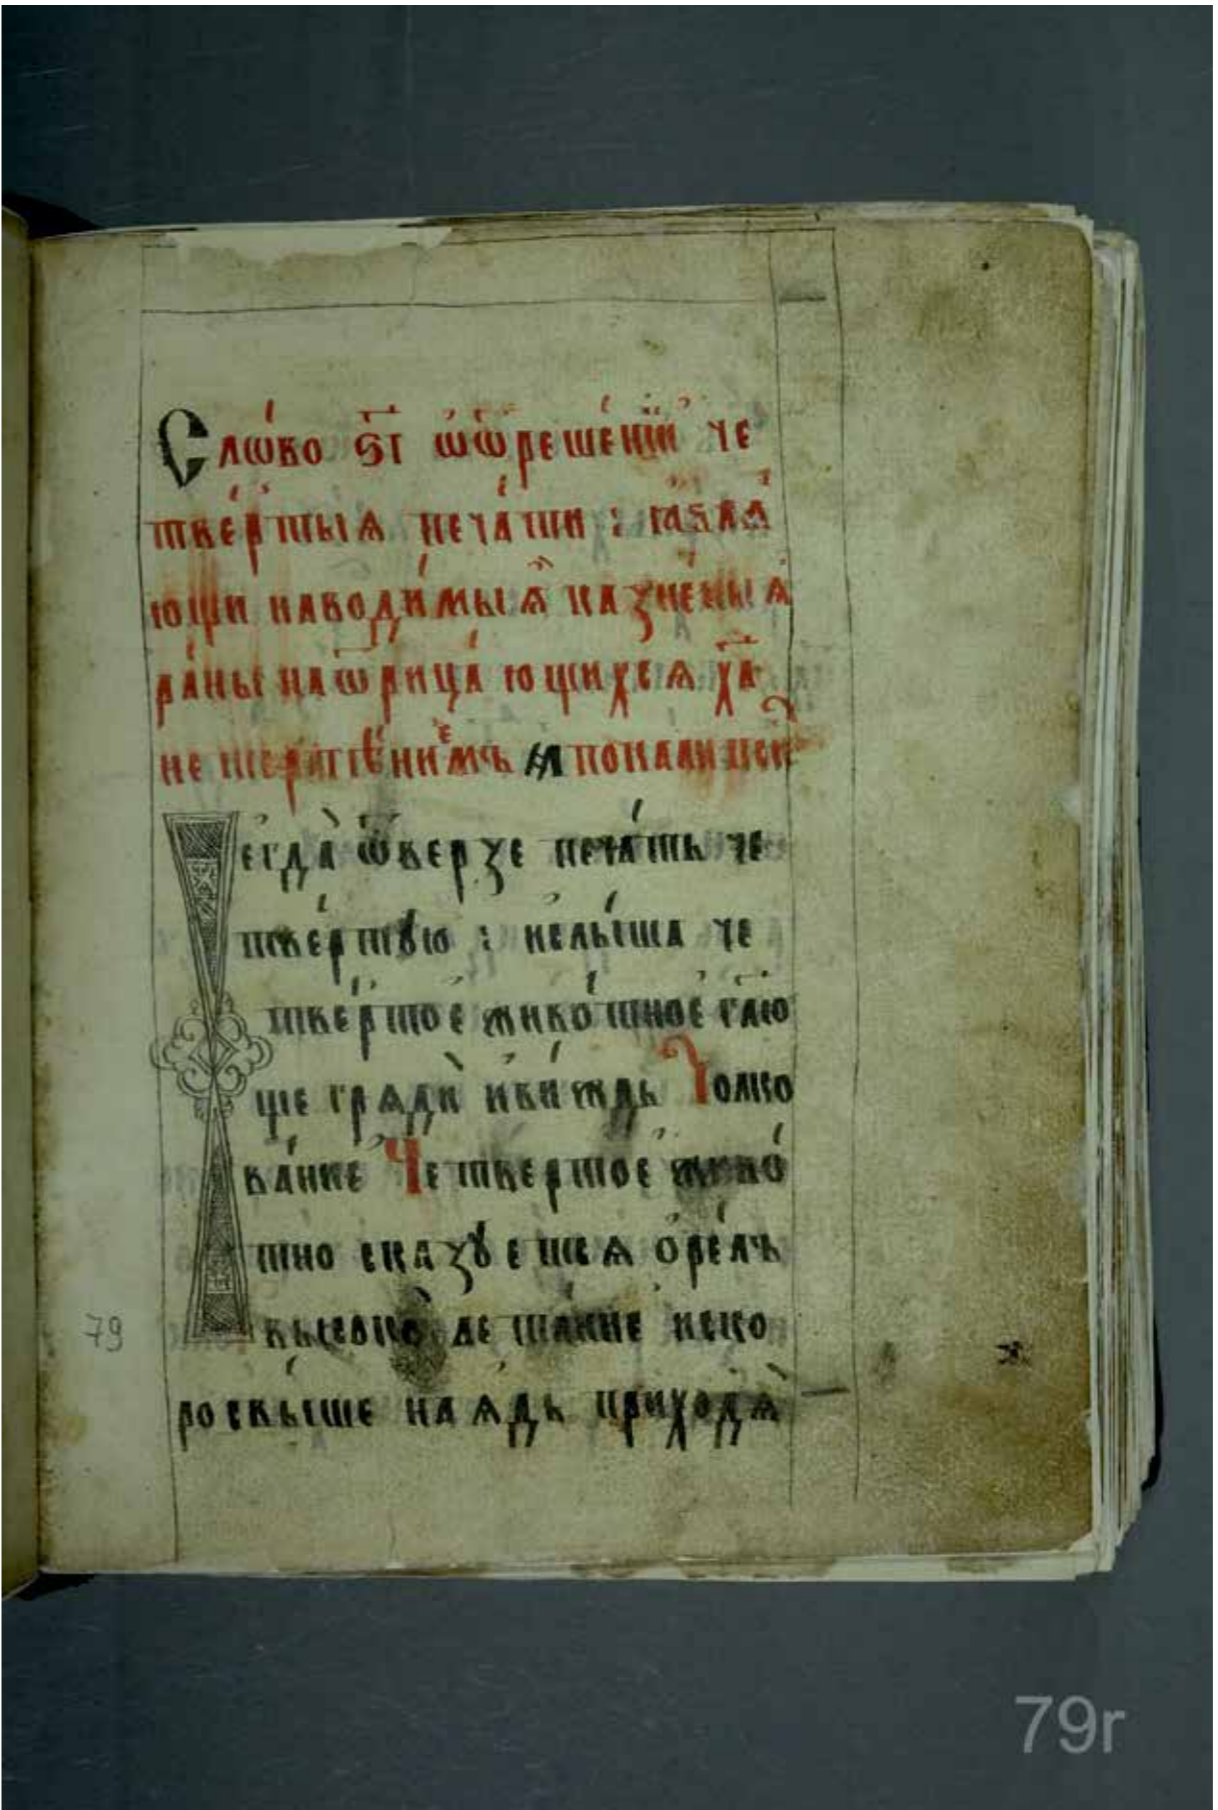 Сло́во ѕ҃і ѡ҆ ѿрѣше́нїи че
тве́ртыѧ печа́ти : ꙗ҆влѧ
ющи наводи́мыѧ казне́ныѧ
ра́ны на ѿрица́ющихсѧ хс҃а
не
И҆егда̀ ѿверзе печа́ть че
тве́ртꙋю : и҆слы́ша че
тве́ртое живо́тное гл҃ю
ще грѧдѝ и҆ви́ждь Толко
ва́ние Четвертое живо́
тно сказꙋ́етсѧ ѻ҆ре́лъ
высоко летание иско
ро свы́ше наѧдь приходѧ
79
79r